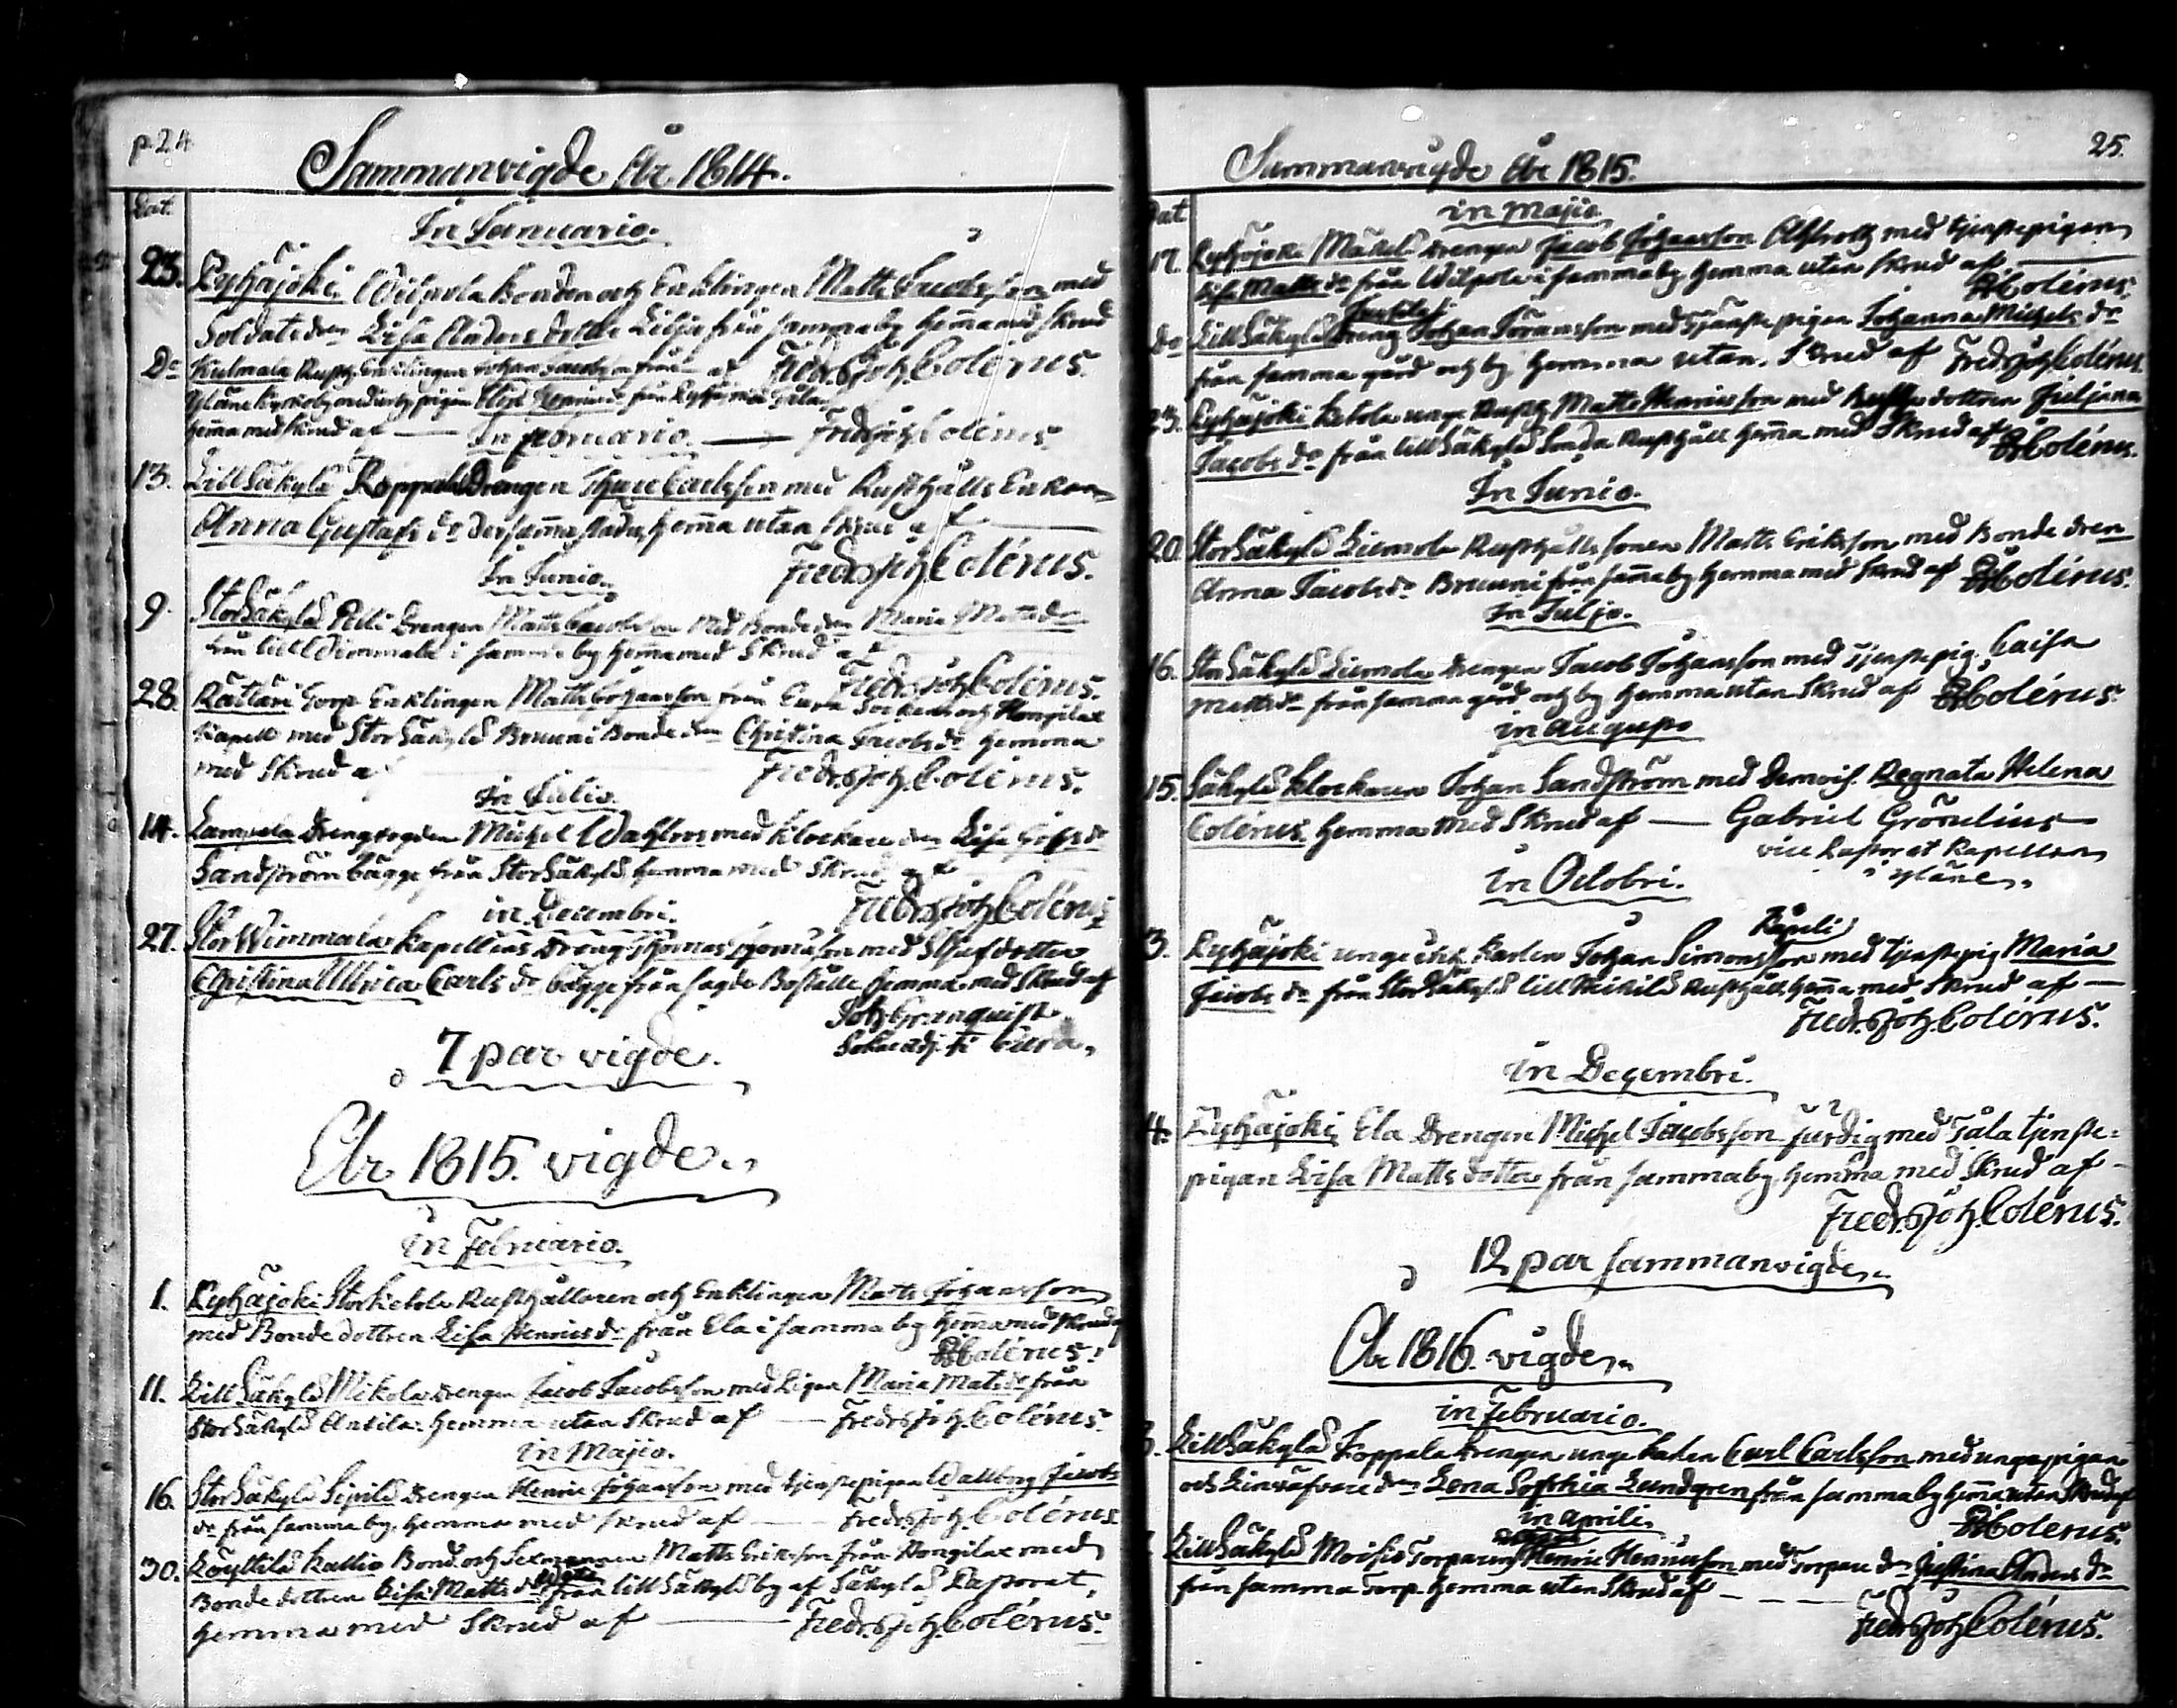 p. 24
Sammanvigde År 1814.
Dat.
In Januario.
23. Pyhäjoki Wilpola bonden och Enklingen Matts Jacobsson med
Soldate dr Lisa Anders dotter Lilja från samma by hemma med skrud
af Fredr. Joh. Colérus.
Do Kulmala Rusth. Enklingen Johan Jacobsson från
Yläne Kyrkoby med unga pigan från Pyhäjoki
hemma med skrud af — Fredr. Joh. Colérus.
In Februario.
13. Lill Säkylä Koppala Drengen Thure Carlsson med Rusthålls Enkan
Anna Gustafs dr dersamma stades, hemma utan skrud af
Fredr. Joh. Colérus.
In Junio.
9. Stor Säkylä Pelli Drengen Matts Jacobsson med Bonde dr Maria Matts dr
från lill Wimmala i samma by hemma med Skrud af
Fredr. Joh. Colérus.
28. Rättäri Torp Enklingen Matts Johansson från Eura Socken och Hongilax
Kapell med Stor Säkylä Bruuni Bonde dr Christina Jacobs dr hemma
med Skrud af Fredr. Joh. Colérus.
In Julio.
14. Drengfogden Michel Wahlroos med klockare dr Lisa Johs dr
Sandström bägge från Stor Säkylä, hemma med Skrud af
Fredr. Joh. Colérus.
in Decembri.
27. Stor Wimmala Kapellans Dreng Thomas Thomasson med Styfdotter
Christina Ullrica Carls dr bägge från sagde Boställe hemma med Skrud af
Joh. Granquist
Sokne adj. i Eura.
7 par vigde.
År 1815. vigde.
in Februario.
1. Pyhäjoki Storketola Rusthållaren och Enklingen Matts Johansson
med Bonde dottren Lisa Henrics dr från Ela i samma by hemma med skrud af
FJColérus.
11. Lill Säkylä Mikola drengen Jacob Jacobsson med Pigan Maria Mats dr från
Stor Säkylä Antila hemma utan skrud af — Fredr. Joh. Colérus.
in Majio.
16. Stor Säkylä Sipilä drengen Henric Johansson med tjenstepigan Wallborg Jacobs
dr från samma by, hemma med skrud af — Fredr. Joh. Colérus.
30. Köyliolä Kallio Bond. och Matts Ericsson från Hongilax med
Bonde dottren Lisa Matts dr från lill Säkylä by af Säkylä Pastorat,
hemma med Skrud af — Fredr. Joh. Colérus.
25.
Sammanvigde År 1815.
Dat
in Majio
17. Pyhäjoki Mäkelä drengen Jacob Johansson med tjenstepigan
Lisa Matts dr från Wilpola i samma by hemma utan skrud af
FJColérus.
Do Lill Säkylä dreng Johan Göransson med Tjänste pigan Johanna Michels dr
från samma gård och by hemma utan Skrud af Fredr. Joh. Colérus.
23. Pyhäjoki Ketola unge Rusth. Matts Henricsson med Rusth. dottren Juljana
Jacobs dr från lill Säkylä Rusthåll hemma med Skrud af FJColérus.
In Junio.
20. Stor Säkylä Liemola Rusthålls sonen Matts Eriksson med Bonde dren
Anna Jacobs dr Bruuni från samma by hemma med skrud af FJColérus.
In Juljo.
16. Stor Säkylä Liemola drengen Jacob Johansson med tjenstepig. Caisa
Matts dr från samma gård och by hemma utan Skrud af FJColérus.
in Augusto
15. Säkylä klockaren Johan Sandström med Demois. Regnata Helena
Colérus. hemma med Skrud af — Gabriel Grönelius
vice Pastor et Kapellan
i Yläne.
in Octobri.
3. Pyhäjoki unge Karlen Johan Simonsson med tjenstepig Maria
Jacobs dr från Stor Säkylä lill Mikilä Rusthåll, hemma med Skrud af —
Fredr. Joh. Colérus.
in Decembri.
4. Pyhäjoki Ela Drengen Michel Jacobsson med Tåla tjenste-
pigan Lisa Matts dotter från samma by, hemma med Skrud af —
Fredr. Joh. Colérus.
12 par sammanvigde.
År 1816. vigde.
in Februario.
Lill Säkylä Koppala drengen unge karlen Carl Carlsson med unga pigan
och Linväfvare dr Lena Sophia Lundgren från samma by hemma utan Skrud af
FJColérus.
in Aprili.
Lill Säkylä Moisio Torparen Henric Henricsson med Torpare dr Justina Anders dr
från samma Torp. hemma utan Skrud af —
Fredr. Joh. Colérus.